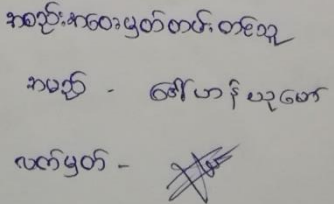 အစည်းအဝေးမှတ်တမ်းတင်သူ
အမည် - ဒေါ်ဟန်ယုမော်
လက်မှတ် -